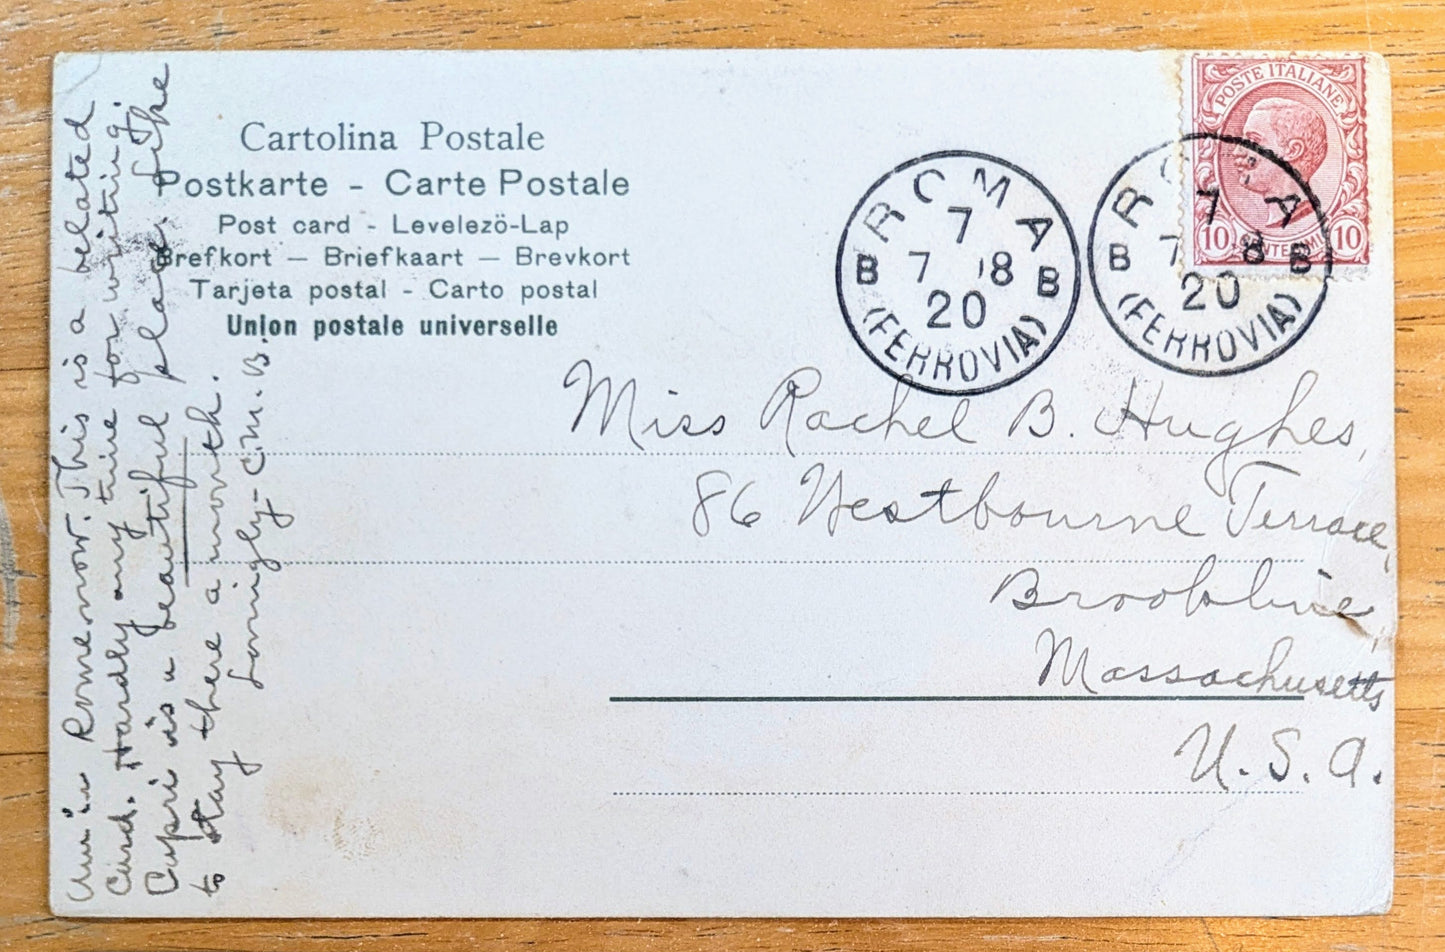 Cartolina Postale
Postkarte - Carte Postale
Post card - Levelezö-Lap
Brefkort — Briefkaart — Brevkort
Tarjeta postal - Carto postal
Union postale universelle
ROMA
7
7 '08
B B
20
(FERROVIA)
ROMA
7
7 8
B B
20
(FERROVIA)
POSTE ITALIANE
10 CENTESIMI 10
Miss Rachel B. Hughes,
86 Westbourne Terrace,
Brookline,
Massachusetts
U. S. A.
Am in Rome now. This is a belated
card. Hardly any time for writing.
Capri is a beautiful place. I'd like
to stay there a month.
Lovingly - C.M.B.